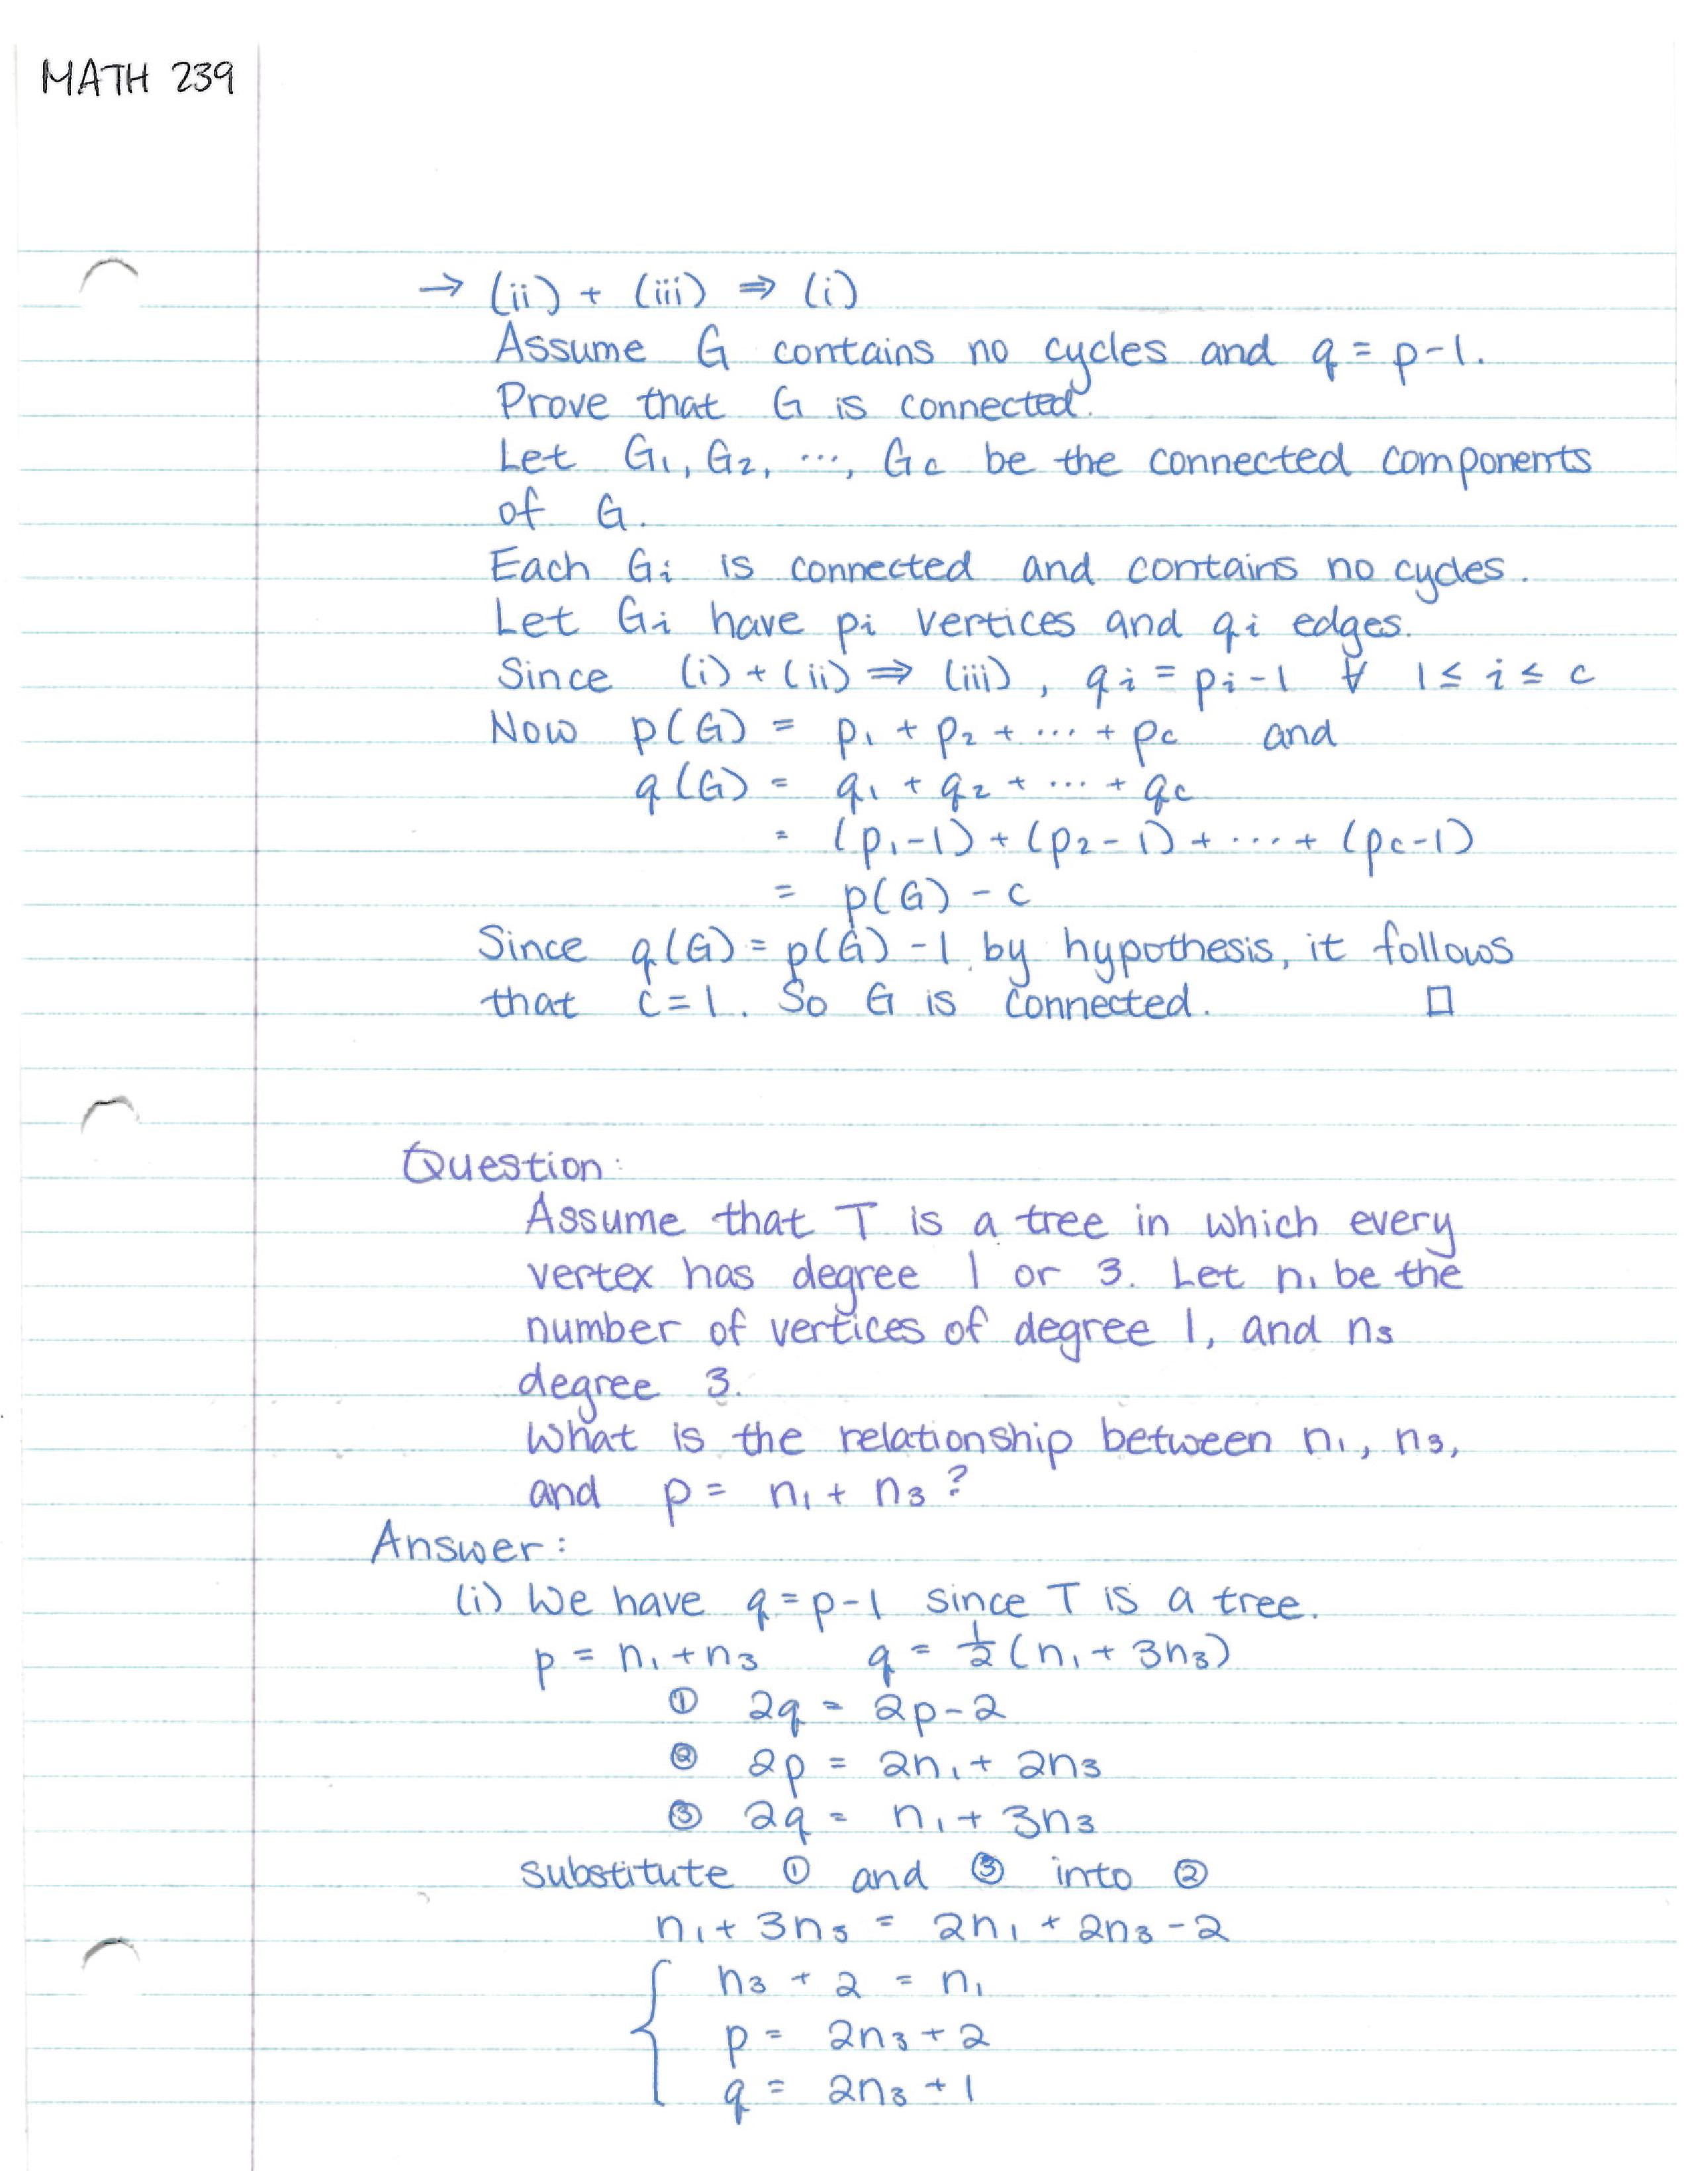 MATH 239
→ (ii) + (iii) ⇒ (i)
Assume G contains no cycles and q = p-1.
Prove that G is connected.
Let G₁, G₂, ..., Gc be the connected components
of G.
Each Gi is connected and contains no cycles.
Let Gi have pi vertices and qi edges.
Since (i) + (ii) ⇒ (iii), qi = pi-1 ∀ 1 ≤ i ≤ c
Now p(G) = p₁ + p₂ + ... + pc and
q(G) = q₁ + q₂ + ... + qc
= (p₁-1) + (p₂-1) + .... + (pc-1)
= p(G) - c
Since q(G) = p(G) - 1 by hypothesis, it follows
that c = 1. So G is connected. □
Question:
Assume that T is a tree in which every
vertex has degree 1 or 3. Let n₁ be the
number of vertices of degree 1, and n₃
degree 3.
What is the relationship between n₁, n₃,
and p = n₁ + n₃?
Answer:
(i) We have q = p-1 since T is a tree.
p = n₁ + n₃ q = ½(n₁ + 3n₃)
① 2q = 2p - 2
② 2p = 2n₁ + 2n₃
③ 2q = n₁ + 3n₃
substitute ① and ③ into ②
n₁ + 3n₃ = 2n₁ + 2n₃ - 2
{ n₃ + 2 = n₁
p = 2n₃ + 2
q = 2n₃ + 1